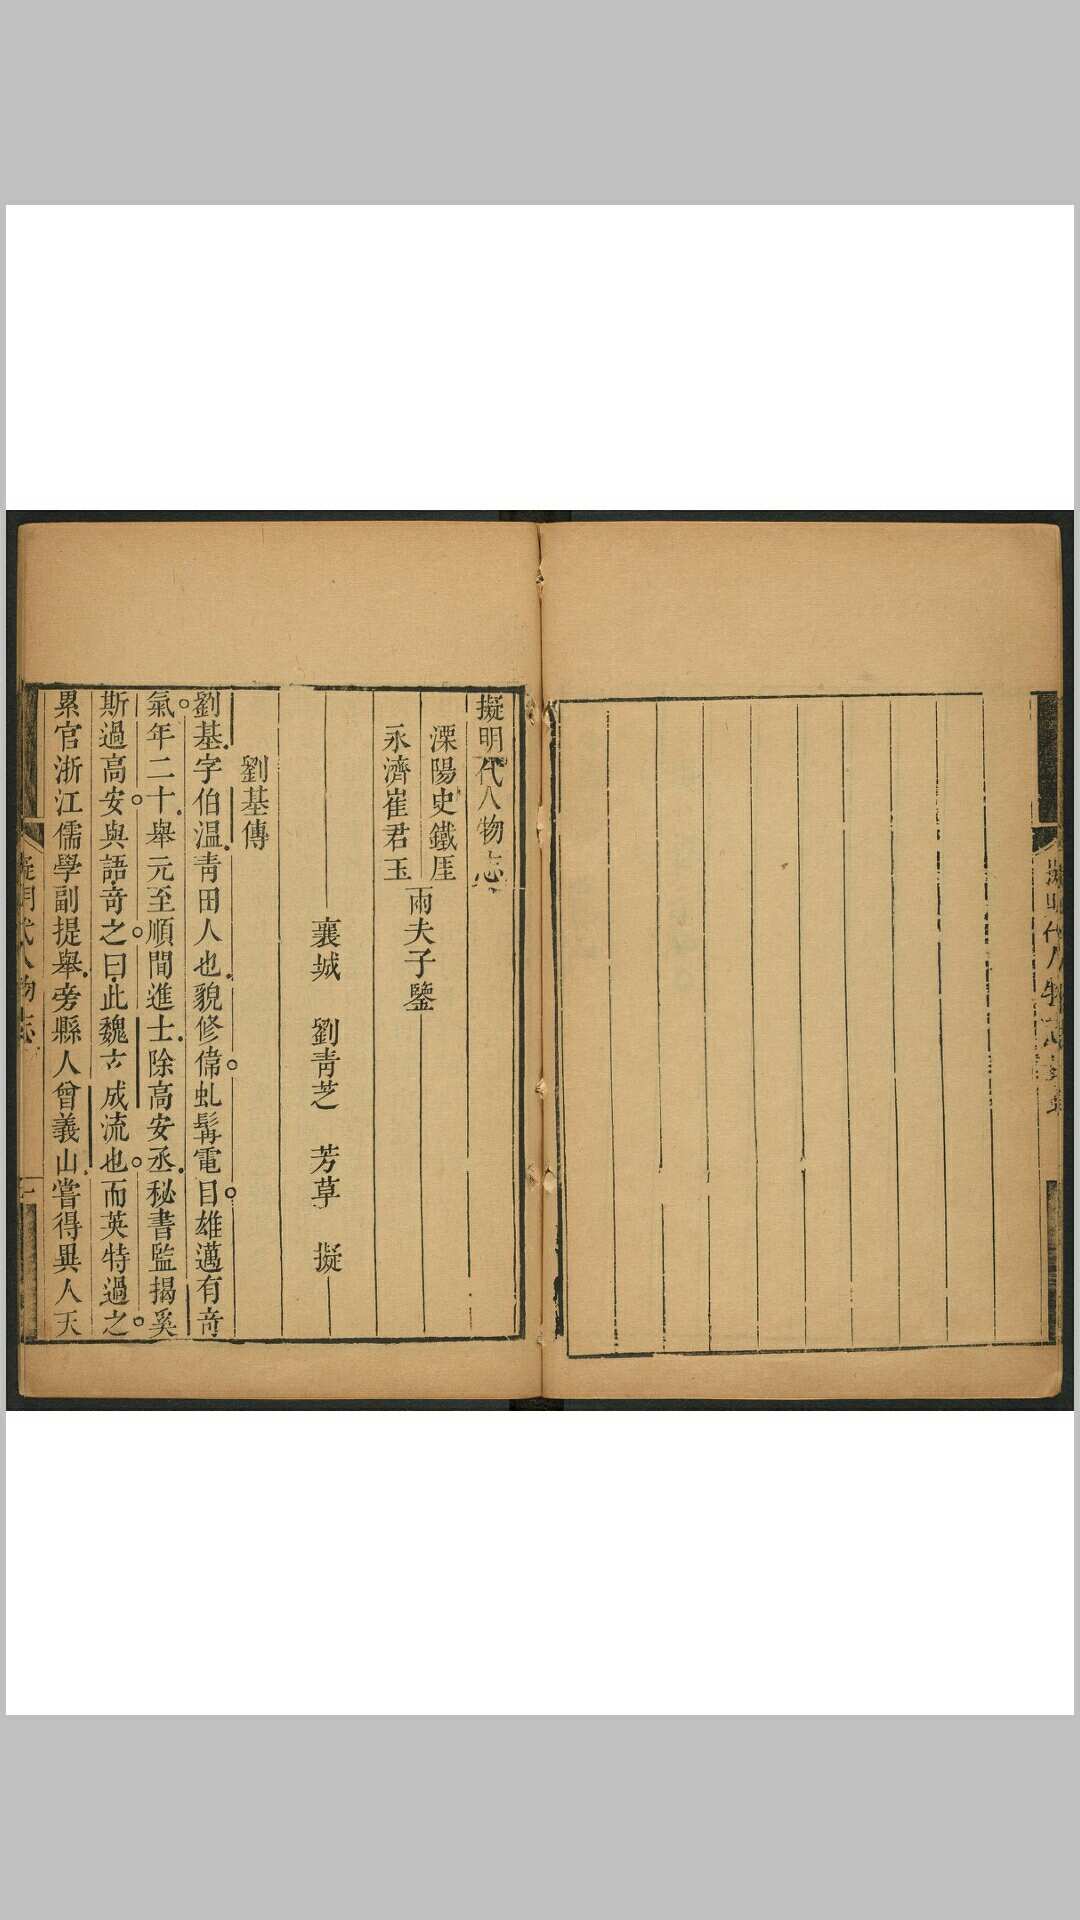 擬明代人物志
溧陽史鐵厓
永濟崔君玉
兩夫子鑒
襄城 劉青芝 芳草 擬
劉基傳
劉基字伯温青田人也貌修偉虬髯電目雄邁有奇
氣年二十舉元至順間進士除高安丞秘書監揭奚
斯過高安與語奇之曰此魏玄成流也而英特過之
累官浙江儒學副提舉旁縣人曾義山嘗得異人天
擬明代人物志
一